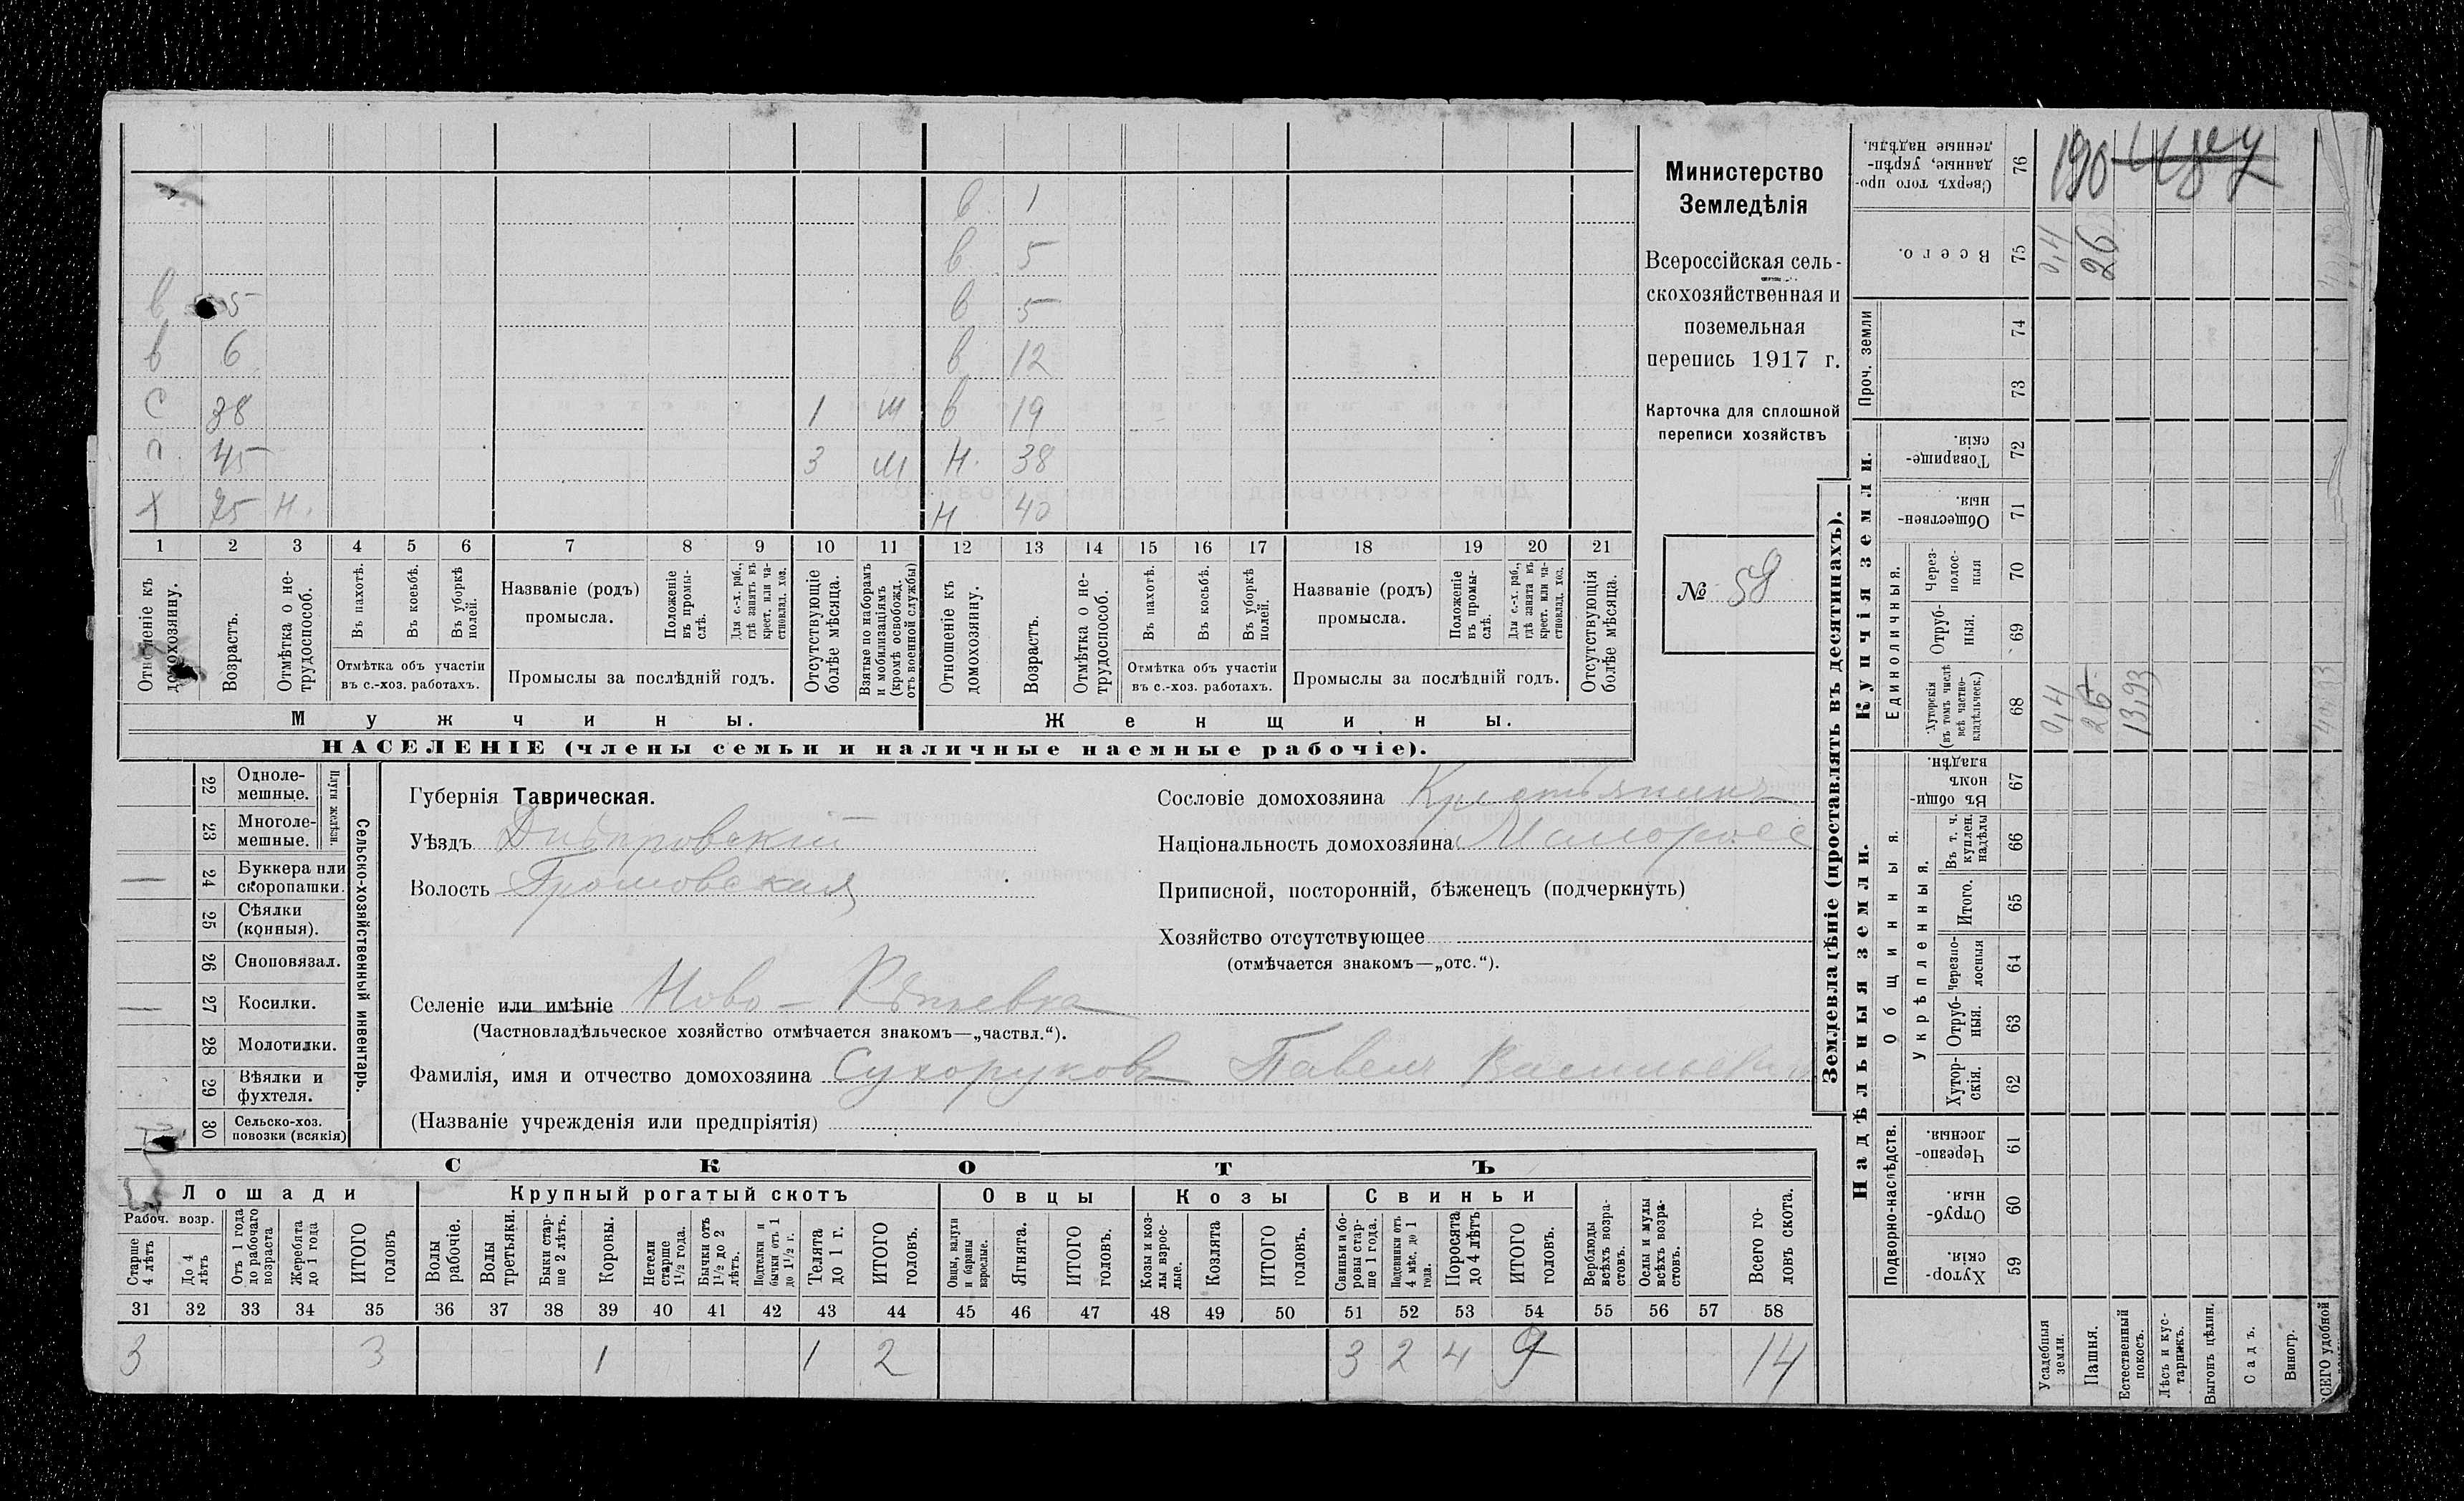 в 1
в 5
в 5 в 5
в 6 в 12
с 38 1 м в 19
п. 45 3 м н. 38
х 75 н. н 40
1 2 3 4 5 6 7 8 9 10 11 12 13 14 15 16 17 18 19 20 21
Отношеніе къ домохозяину.
Возрастъ.
Отмѣтка о не-
трудоспособ.
Въ пахотѣ.
Въ косьбѣ.
Въ уборкѣ
полей.
Отмѣтка объ участіи
въ с.-хоз. работахъ.
Названіе (родъ)
промысла.
Положеніе
въ промы-
слѣ.
Для с.-х. раб.,
гдѣ занятъ въ
крест. или ча-
стновлад. хоз.
Промыслы за послѣдній годъ.
Отсутствующіе
болѣе мѣсяца.
Взятые по наборамъ
и мобилизаціямъ
(кромѣ освобожд.
отъ военной службы)
Отношеніе къ
домохозяину.
Возрастъ.
Отмѣтка о не-
трудоспособ.
Въ пахотѣ.
Въ косьбѣ.
Въ уборкѣ
полей.
Отмѣтка объ участіи
въ с.-хоз. работахъ.
Названіе (родъ)
промысла.
Положеніе
въ промы-
слѣ.
Для с.-х. раб.,
гдѣ занята въ
крест. или ча-
стновлад. хоз.
Промыслы за послѣдній годъ.
Отсутствующія
болѣе мѣсяца.
Мужчины.
Женщины.
НАСЕЛЕНІЕ (члены семьи и наличные наемные рабочіе).
Министерство
Земледѣлія
Всероссійская сель-
скохозяйственная и
поземельная
перепись 1917 г.
Карточка для сплошной
переписи хозяйствъ
№ 58
22 Одноле-
мешные.
23 Многоле-
мешные.
Плуги желѣзн.
24 Буккера или
скоропашки.
25 Сѣялки
(конныя).
26 Сноповязал.
27 Косилки.
28 Молотилки.
29 Вѣялки и
фухтеля.
30 Сельско-хоз.
повозки (всякія)
Сельско-хозяйственный инвентарь.
Губернія Таврическая.
Уѣздъ Днѣпровскій
Волость Громовская
Селеніе или имѣніе Ново-Рѣпьевка
(Частновладѣльческое хозяйство отмѣчается знакомъ—„частвл.“).
Фамилія, имя и отчество домохозяина Сухоруковъ Павелъ Васильевичъ
(Названіе учрежденія или предпріятія)
Сословіе домохозяина Крестьянинъ
Національность домохозяина Малоросс
Приписной, посторонній, бѣженецъ (подчеркнуть)
Хозяйство отсутствующее
(отмѣчается знакомъ—„отс.“).
СКОТЪ
Лошади Крупный рогатый скотъ Овцы Козы Свиньи
Рабоч. возр.
Старше
4 лѣтъ
До 4
лѣтъ
Отъ 1 года
до рабочаго
возраста
Жеребята
до 1 года
ИТОГО
головъ
Волы
рабочіе.
Волы
третьяки.
Быки стар-
ше 2 лѣтъ.
Коровы.
Нетели
старше
1½ года.
Бычки отъ
1½ до 2
лѣтъ.
Подтелки и
бычки отъ 1
до 1½ г.
Телята
до 1 г.
ИТОГО
головъ.
Овцы, валухи
и бараны
взрослые.
Ягнята.
ИТОГО
головъ.
Козы и коз-
лы взрос-
лые.
Козлята
ИТОГО
головъ.
Свиньи и бо-
ровы стар-
ше 1 года.
Подсвинки отъ
4 мѣс. до 1
года.
Поросята
до 4 лѣтъ
ИТОГО
головъ.
Верблюды
всѣхъ возра-
стовъ.
Ослы и мулы
всѣхъ возра-
стовъ.
Всего го-
ловъ скота.
31 32 33 34 35 36 37 38 39 40 41 42 43 44 45 46 47 48 49 50 51 52 53 54 55 56 57 58
3 3 1 1 2 3 2 4 9 14
Землевладѣніе (проставлять въ десятинахъ).
Купчія земли.
Надѣльныя земли.
Сверхъ того про-
данные, укрѣп-
ленные надѣлы.
76
Всего.
75 0,4 26
Проч. земли
74
73
Товарище-
скія.
72
Обществен-
ныя.
71
Единоличныя.
Через-
полос-
ныя
70
Отруб-
ныя.
69
Хуторскія
(въ томъ числѣ
всѣ частно-
владѣльческ.)
68 0,4 26 13,93
Общинныя.
Въ общи-
номъ
владѣн.
67
Укрѣпленныя.
Въ т. ч.
куплен.
надѣлы
66
Итого.
65
Черезпо-
лосныя
64
Отруб-
ныя.
63
Хутор-
скія.
62
Подворно-наслѣдств.
Черезпо-
лосныя.
61
Отруб-
ныя.
60
Хутор-
скія.
59
Усадебныя
земли.
Пашня.
Естественный
покосъ.
Лѣсъ и кус-
тарникъ.
Выгонъ цѣлин.
Садъ.
Виногр.
ВСЕГО удобной